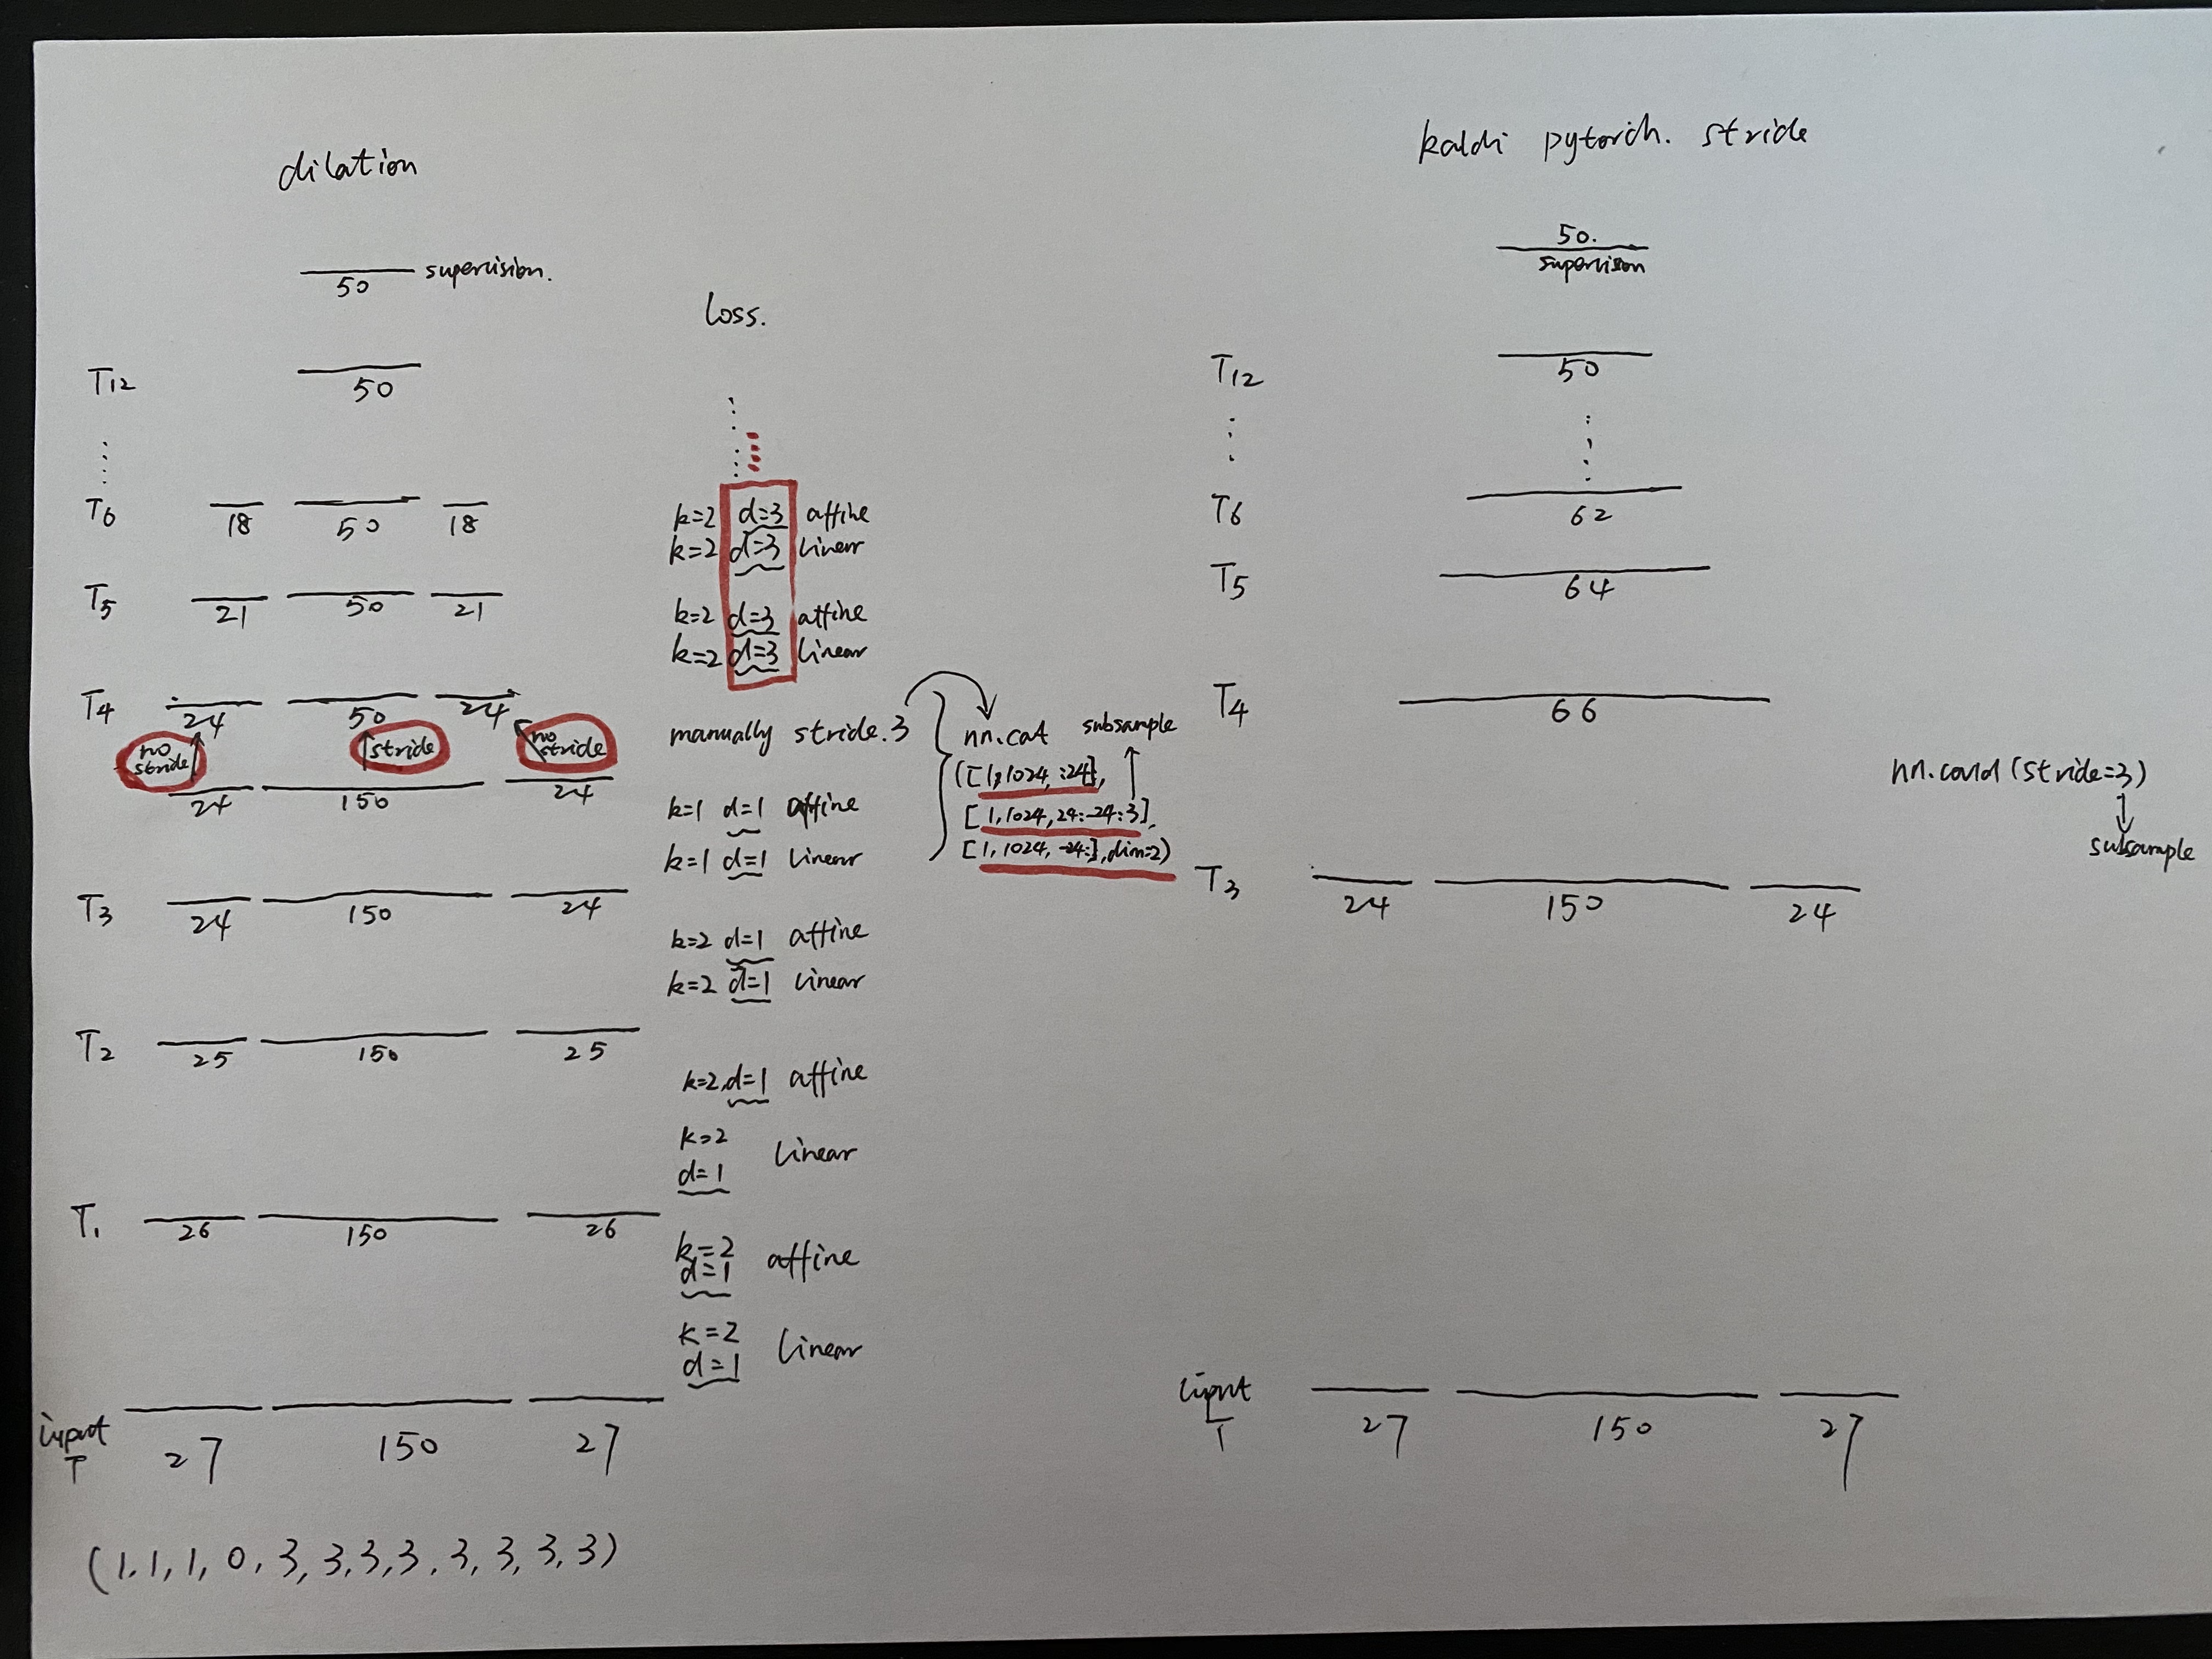 dilation
50 supervision.
T12
50
T6
18 50 18
T5
21 50 21
T4
24 50 24
no stride
stride
no stride
24 150 24
T3
24 150 24
T2
25 150 25
T1
26 150 26
input T
27 150 27
(1,1,1,0,3,3,3,3,3,3,3,3)
loss.
k=2 d=3 affine
k=2 d=3 linear
k=2 d=3 affine
k=2 d=3 linear
manually stride.3
k=1 d=1 affine
k=1 d=1 linear
k=2 d=1 affine
k=2 d=1 linear
k=2,d=1 affine
k=2
d=1 linear
k=2
d=1 affine
k=2
d=1 linear
nn.cat subsample
([1,1024,:24],
[1,1024,24:-24:3],
[1,1024,-24:],dim=2)
kaldi pytorch. stride
50.
supervison
T12
50
T6
62
T5
64
T4
66
nn.conv1d(stride=3)
subsample
T3
24 150 24
input
T
27 150 27